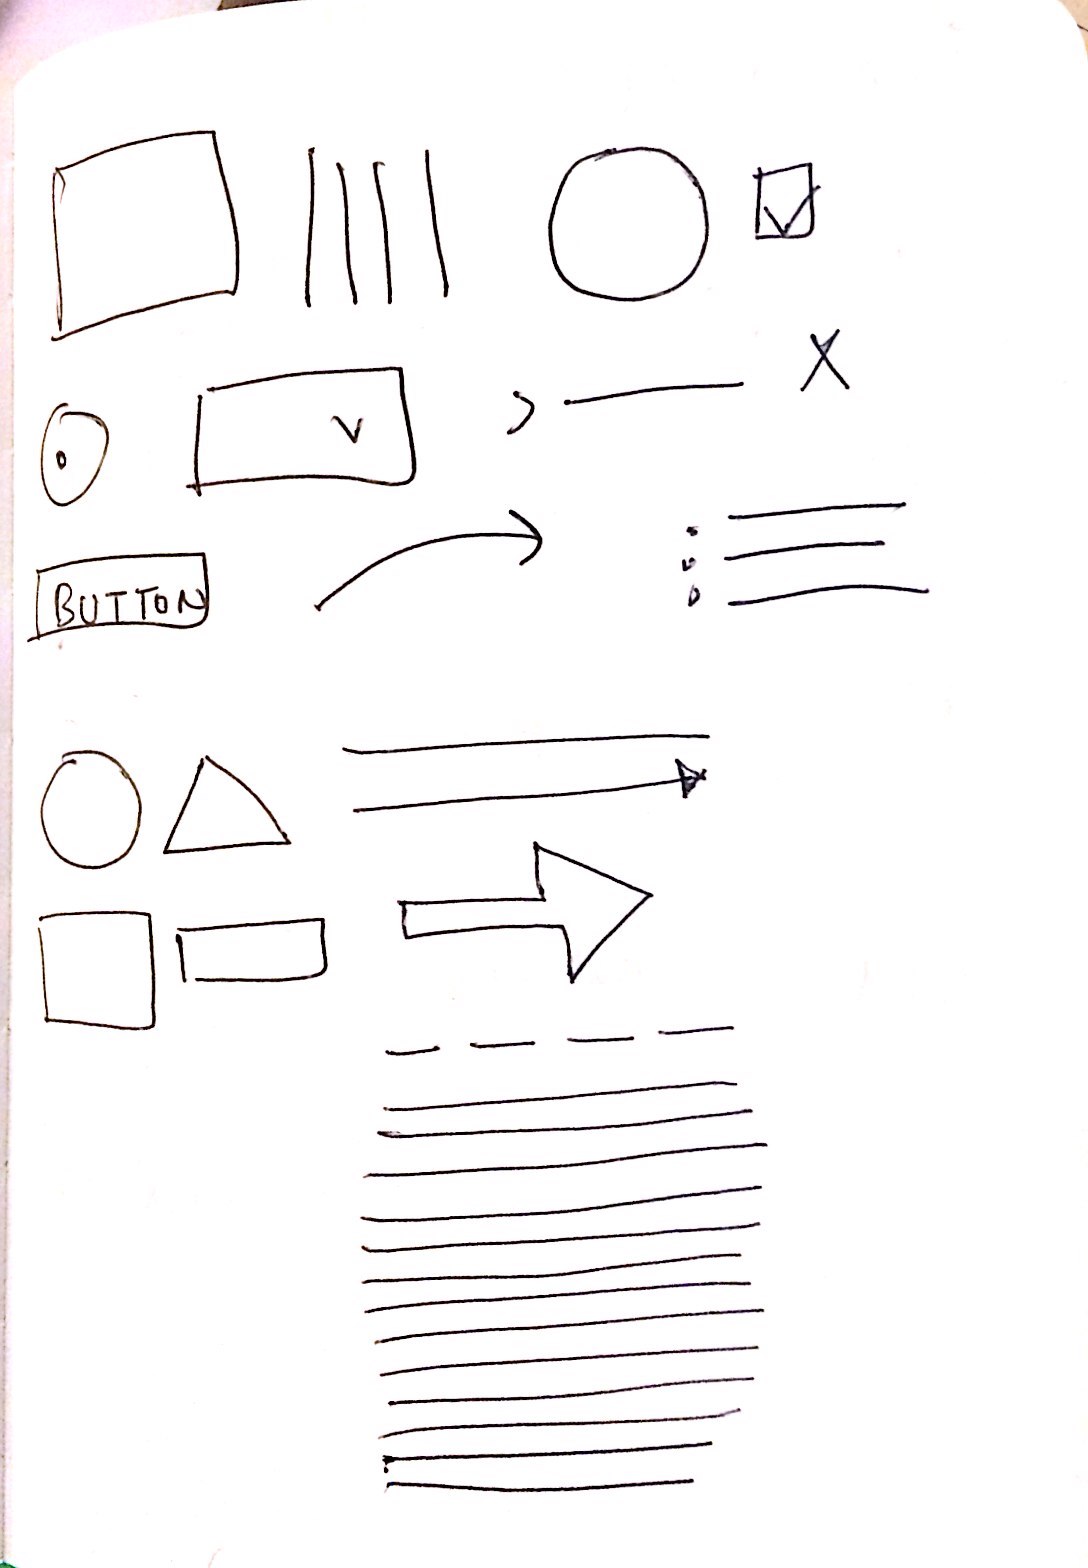 X
BUTTON